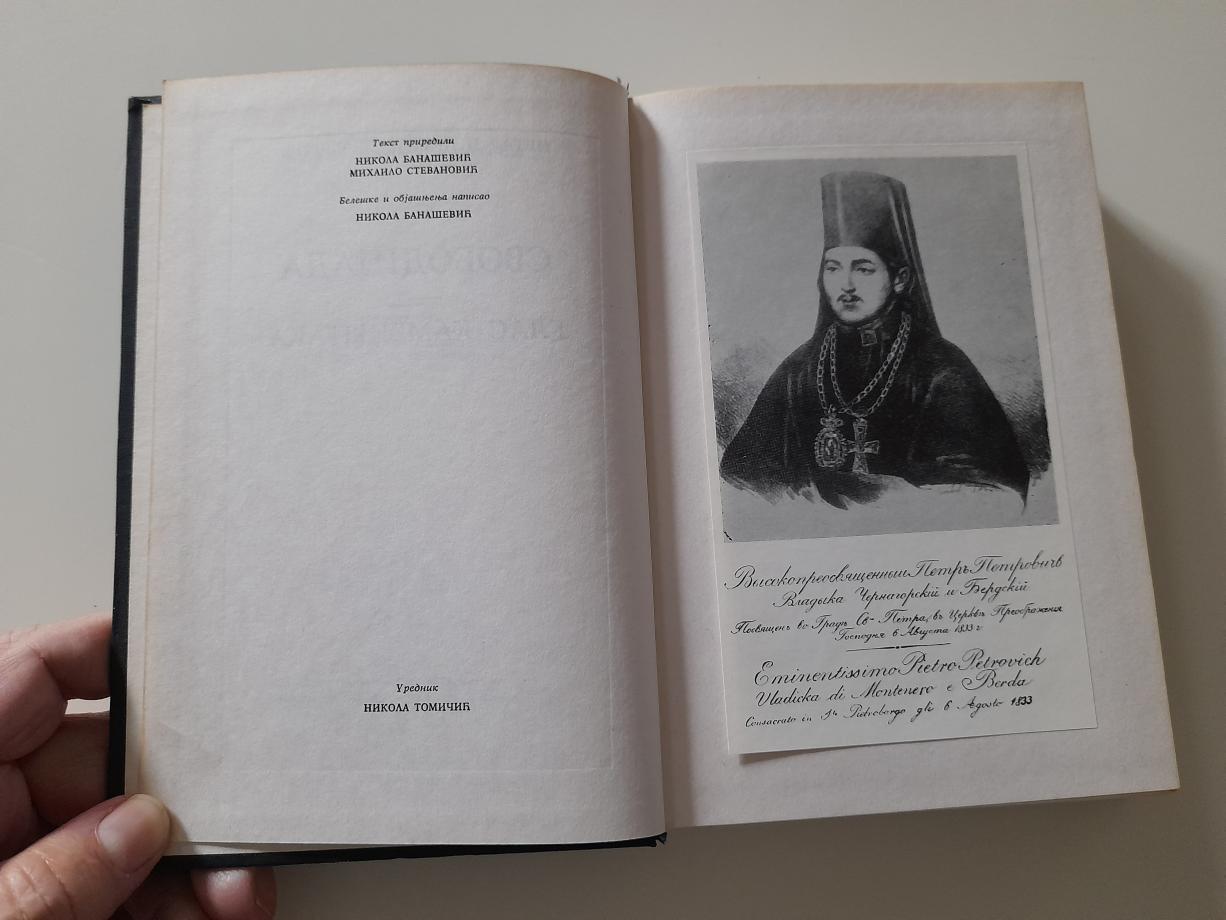 Текст приредили
НИКОЛА БАНАШЕВИЋ
МИХАИЛО СТЕВАНОВИЋ
Белешке и објашњења написао
НИКОЛА БАНАШЕВИЋ
Уредник
НИКОЛА ТОМИЧИЋ
Высокопреосвященный Петръ Петровичъ
Владыка Чернагорскій и Бердскій
Посвященъ во Градѣ Св- Петра, въ Церквѣ Преображенія
Господня 6 Августа 1833 г
Eminentissimo Pietro Petrovich
Vladicka di Montenero e Berda
Consacrato in Sn Pietroborgo gli 6 Agosto 1833